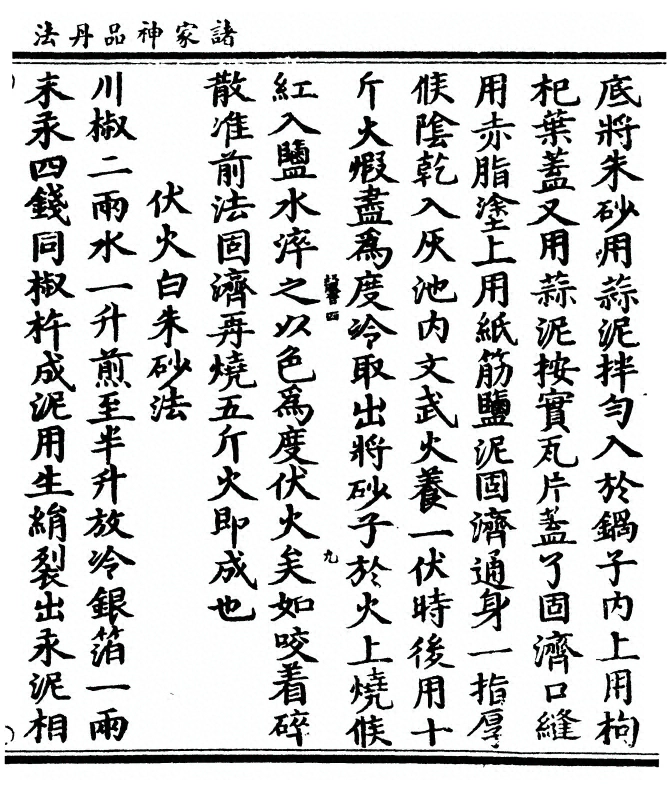 諸家神品丹法
底將朱砂用蒜泥拌勻入於鍋子内上用枸
杞葉蓋又用蒜泥按實瓦片蓋了固濟口縫
用赤脂塗上用紙筋鹽泥固濟通身一指厚
候陰乾入灰池内文武火養一伏時後用十
斤火煆盡爲度冷取出將砂子於火上燒候
紅入鹽水淬之以色爲度伏火矣如咬着碎
散准前法固濟再燒五斤火即成也
伏火白朱砂法
川椒二兩水一升煎至半升放冷銀箔一兩
末汞四錢同椒杵成泥用生絹裂出汞泥相
九